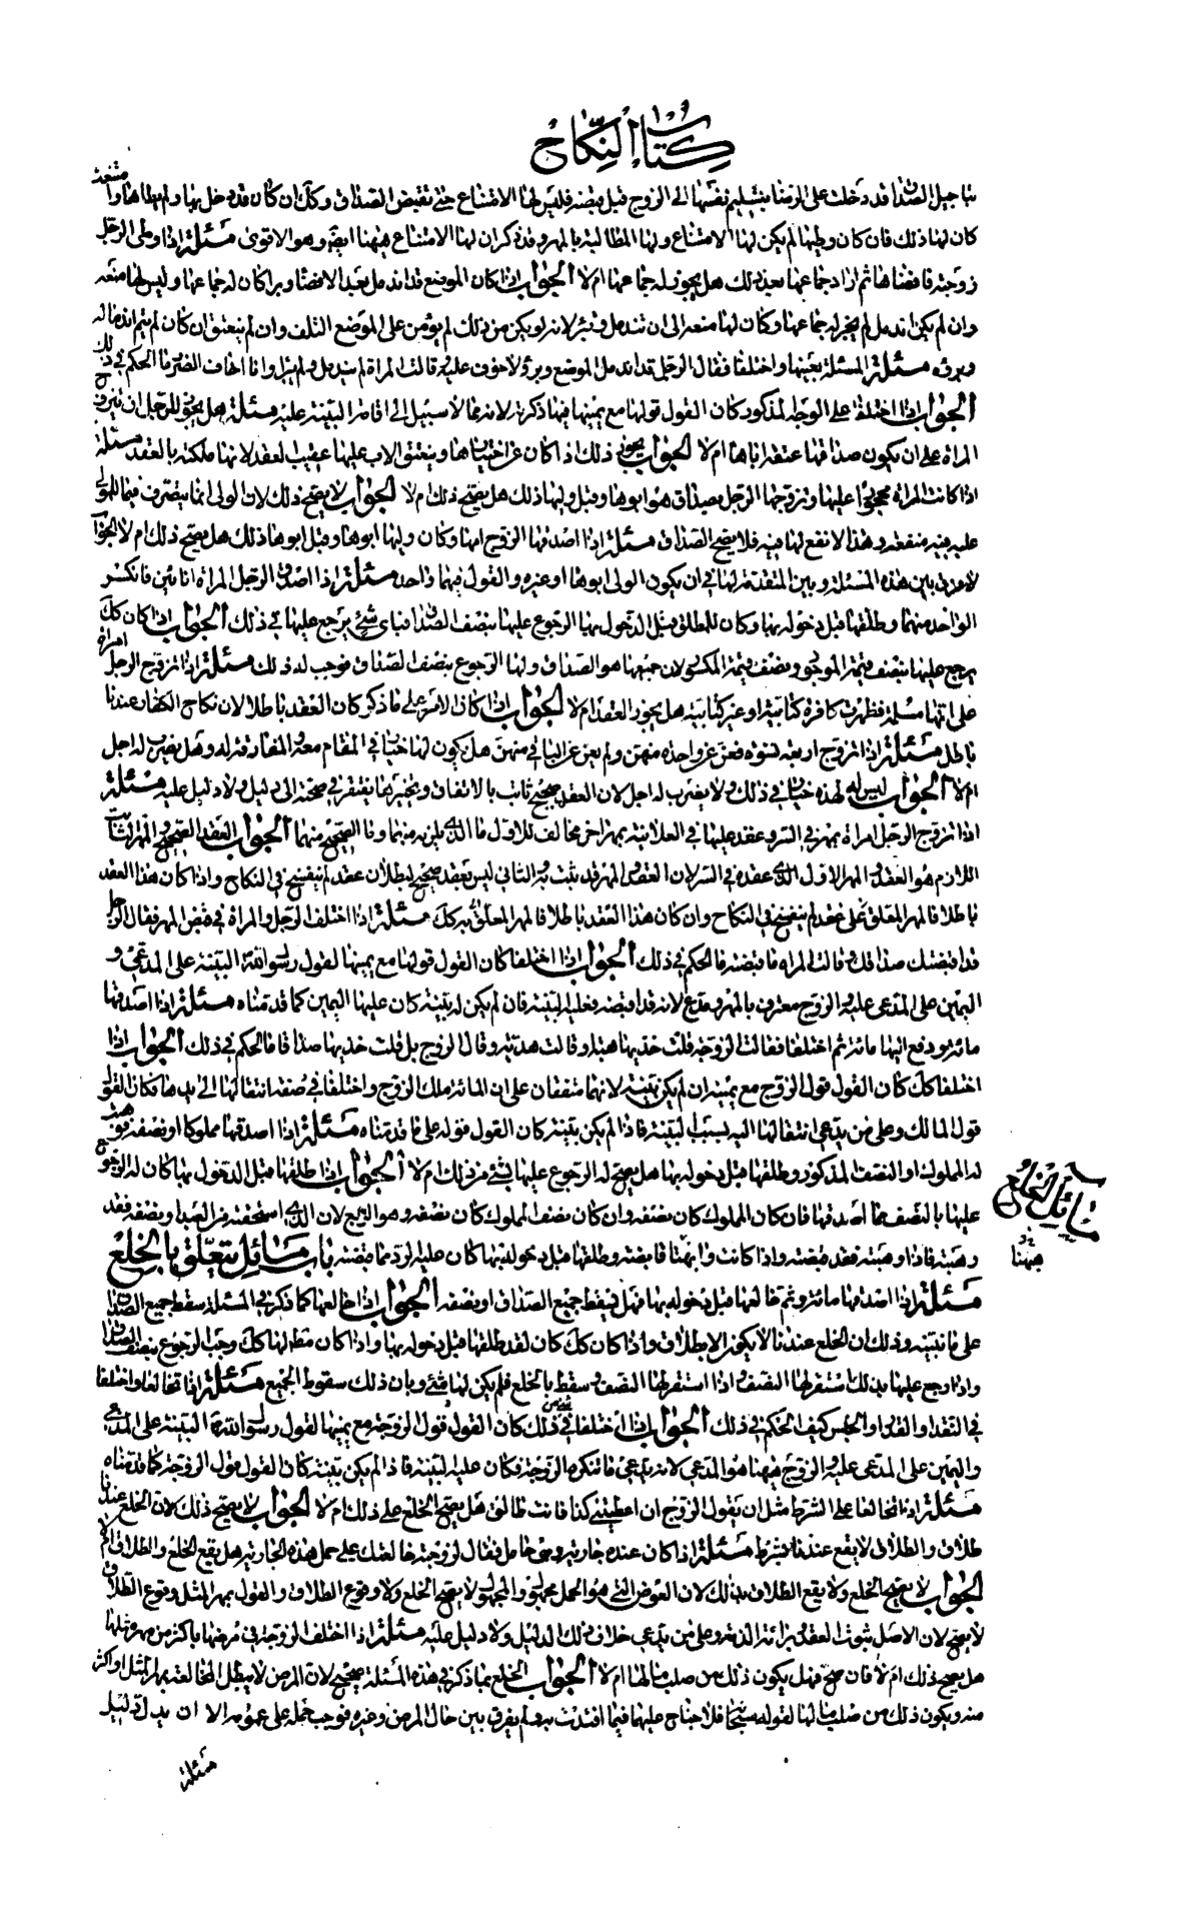 كتاب النكاح
بتاجيل الصداق قد دخلت على الرضا بتسليم نفسها الى الزوج قبل قبضه فليس لها الامتناع حتى تقبض الصداق وكك ان كان قد دخل بها ولم يطاها وامتنعت
كان لها ذلك فان كان وطيها لم يكن لها الامتناع ولها المطالبة بالمهر وقد ذكر ان لها الامتناع هيهنا ايضا وهو الاقوى مسئلة اذا وطى الرجل
زوجته فافضاها ثم اراد جماعها بعد ذلك هل يجوز له جماعها ام لا الجواب اذا كان الموضع قد اندمل بعد الافضا وبرا كان له جماعها وليس لها منعه
وان لم يكن اندمل لم يجز له جماعها وكان لها منعه الى ان تندمل فتبرا لانه لو يكن من ذلك لم يؤمن على الموضع التلف وان لم ينعتق ان كان لم يتم اندماله
وبرؤه مسئلة المسئلة بعينها واختلفا فقال الرجل قد اندمل الموضع وبرؤ ولا خوف عليه وقالت المراة لم يندمل ولم يبرا وانا اخاف الضرر ما الحكم في ذلك
الجواب اذا اختلفا على الوجه المذكور كان القول قولها مع يمينها فيما ذكرته لانه مما لا سبيل الى اقامة البينة عليه مسئلة هل يجوز للرجل ان يتزوج
المراة على ان يكون صداقها عتقه اباها ام لا الجواب يجوز ذلك اذا كان عن اختيارها وينعتق الاب عليها عقيب العقد لانها ملكته بالعقد مسئلة
اذا كانت المراة محجورا عليها وتزوجها الرجل بصداق هو ابوها وقبل وليها ذلك هل يصح ذلك ام لا الجواب لا يصح ذلك لان الولى انما يتصرف فيما للمولى
عليه فيه منفعة وهذا لا نفع لها فيه فلا يصح الصداق مسئلة اذا اصدقها الزوج امها وكان وليها ابوها وقبل ابوها ذلك هل يصح ذلك ام لا الجواب
لا فرق بين هذه المسئلة وبين المتقدمة لها في ان يكون الولى ابوها او غيره والقول فيهما واحد مسئلة اذا اصدق الرجل المراة انائين فانكسر
الواحد منهما وطلقها قبل دخوله بها وكان للمطلق قبل الدخول بها الرجوع عليها بنصف الصداق فباى شىء يرجع عليها في ذلك الجواب اذا كان كك
يرجع عليها بنصف قيمة الموجود ونصف قيمة المكسور لان جميعها هو الصداق ولها الرجوع بنصف الصداق فوجب له ذلك مسئلة اذا تزوج الرجل امراة
على انها مسلمة فظهرت كافرة كتابية او غير كتابية هل يجوز العقد ام لا الجواب اذا كان الامر على ما ذكر كان العقد باطلا لان نكاح الكفار عندنا
باطل مسئلة اذا تزوج اربعة نسوة فعن عن واحدة منهن ولم يعن عن الباقي منهن هل يكون لها خيار في المقام معه او المفارقة له وهل يضرب له اجل
ام لا الجواب ليس لهذه خيار في ذلك ولا يضرب له اجل لان العقد صحيح ثابت بالاتفاق وتخييرها يفتقر في صحته الى دليل ولا دليل عليه مسئلة
اذا تزوج الرجل امراة بمهر في السر وعقد عليها في العلانية بمهر اخر مخالف للاول ما الذى يلزمه منهما وما الصحيح منهما الجواب العقد الصحيح والمهر الثابت
اللازم هو العقد والمهر الاول الذى عقده في السر لان العقد والمهر قد ثبت به والثاني ليس بعقد صحيح لبطلان عقد لم ينفسخ في النكاح واذا كان هذا العقد
باطلا فالمهر المعلق على عقد لم ينفسخ في النكاح وان كان هذا العقد باطلا فالمهر المعلق به كك مسئلة اذا اختلف الرجل والمراة في قبض المهر فقال الرجل
قد اقبضتك صداقك وقالت المراة ما قبضته ما الحكم في ذلك الجواب اذا اختلفا كان القول قولها مع يمينها لقول رسول الله البينة على المدعى و
اليمين على المدعى عليه والزوج معترف بالمهر ومدع لانه قد اقبضه فعليه البينة فان لم يكن له بينة كان عليها اليمين كما قدمناه مسئلة اذا اصدقها
مائة ودفع اليها مائة ثم اختلفا فقالت الزوجة قلت خذيها هبة او قالت هدية وقال الزوج بل قلت خذيها صداقا ما الحكم في ذلك الجواب اذا
اختلفا كك كان القول قول الزوج مع يمينه ان لم يكن بينة لانهما متفقان على ان المائة ملك الزوج واختلفا في صفة انتقالها الى يدها فكان القول
قول المالك وعلى من يدعى انتقالها اليه بسبب البينة فاذا لم يكن بينة كان القول قوله على ما قدمناه مسئلة اذا اصدقها مملوكا او نصفه فوهبت
له المملوك او النصف المذكور وطلقها قبل دخوله بها هل يصح له الرجوع عليها بشىء من ذلك ام لا الجواب اذا طلقها قبل الدخول بها كان له الرجوع
عليها بالنصف مما اصدقها فان كان المملوك كان نصفه وان كان نصف المملوك كان نصفه وهو الربع لان الذى استحقته من العبد او نصفه فقد
وهبته فاذا وهبته فقد قبضته واذا كانت وابهتا قابضة وطلقها قبل دخوله بها كان عليها الرد مما قبضته باب مسائل يتعلق بالخلع
مسئلة اذا اصدقها مائة وثم خالعها قبل دخوله بها فهل يسقط جميع الصداق او نصفه الجواب اذا خالعها كما ذكر في المسئلة سقط جميع الصداق
على ما نبينه وذلك ان الخلع عندنا لا يكون الا بطلاق واذا كان كك كان لقد طلقها قبل دخوله بها واذا كان مطلقا لها كك وجب الرجوع بنصف الصداق
واذا رجع عليها بذلك استقر لها النصف واذا استقر لها النصف وسقط بالخلع فلم يكن لها شىء وبان ذلك سقوط الجميع مسئلة اذا تخالعا واختلفا
في النقد او القدر او الجنس كيف الحكم في ذلك الجواب اذا اختلفا في شىء من ذلك كان القول قول الزوجة مع يمينها لقول رسول الله البينة على المدعى
واليمين على المدعى عليه والزوج هيهنا هو المدعى لانه يدعى ما تنكره الزوجة فكان عليه البينة فاذا لم يكن بينة كان القول قول الزوجة كما قدمناه
مسئلة اذا تخالعا على الشرط مثل ان يقول الزوج ان اعطيتني كذا فانت طالق هل يصح الخلع على ذلك ام لا الجواب لا يصح ذلك لان الخلع عندنا
طلاق والطلاق لا يقع عندنا بشرط مسئلة اذا كان عنده جارية وهى حامل فقال لزوجته خالعتك على حمل هذه الجارية هل يقع الخلع والطلاق ام لا
الجواب لا يصح الخلع ولا يقع الطلاق بذلك لان العوض الذى هو الحمل مجهول والمجهول لا يصح الخلع ولا وقوع الطلاق والقول بمهر المثل ووقوع الطلاق
لا يصح لان الاصل ثبوت العقد وبرائة الذمة وعلى من يدعى خلاف ذلك الدليل ولا دليل عليه مسئلة اذا اختلعت الزوجة في مرضها باكثر من مهر مثلها
هل يصح ذلك ام لا فان صح فهل يكون ذلك من صلب مالها ام لا الجواب الخلع بما ذكر في هذه المسئلة صحيح لان المرض لا يبطل المخالعة بمهر المثل او اكثر
منه ويكون ذلك من صلب مالها لقوله سبحانه فلا جناح عليهما فيما افتدت به ولم يفرق بين حال المرض وغيره فوجب حمله على عمومه الا ان يدل دليل
مسئلة
مسائل الخلع
هيهنا